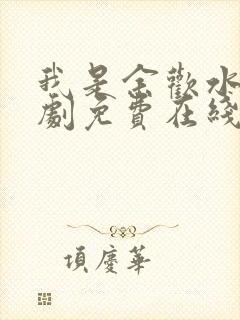 我是金歡水
劇免費在綫
項慶華